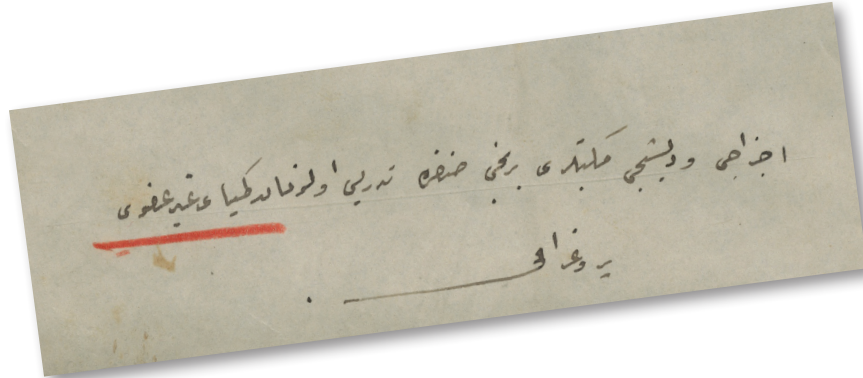 اجزاجی و دیشجی مكتبلری برنجی صنفنده تدریس اولونان كیمیای غیر عضوی
پروغرامی